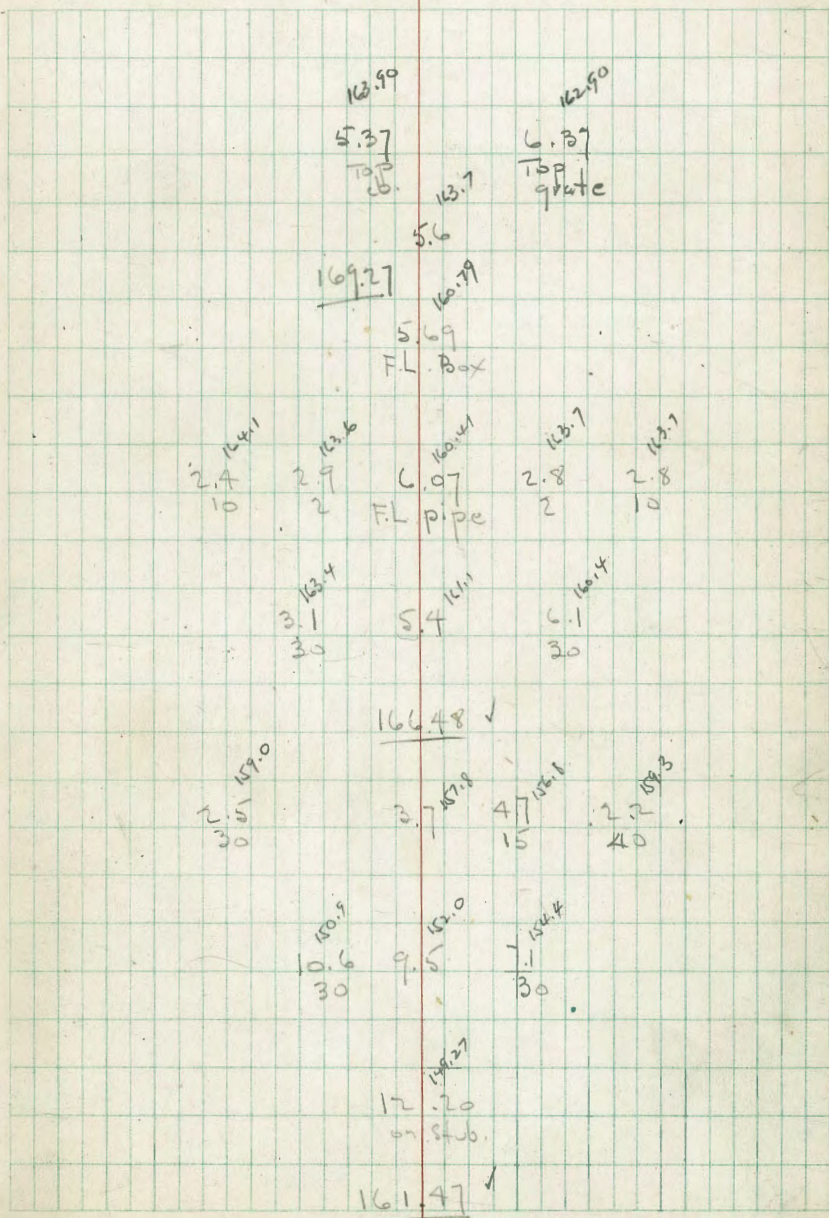 163.90 162.90
5.37 6.37
Top Top
cb. grate
163.7
5.6
169.27
160.79
5.69
F.L. Box
164.1 163.6 160.41 163.7 163.7
2.4 2.9 6.07 2.8 2.8
10 2 F.L. pipe 2 10
163.4 161.1 160.4
3.1 5.4 6.1
30 30
166.48 ✓
159.0 157.8 156.8 159.3
2.5 3.7 4.7 2.2
30 15 40
150.9 152.0 154.4
10.6 9.5 7.1
30 30
149.27
12.20
on Stub.
161.47 ✓